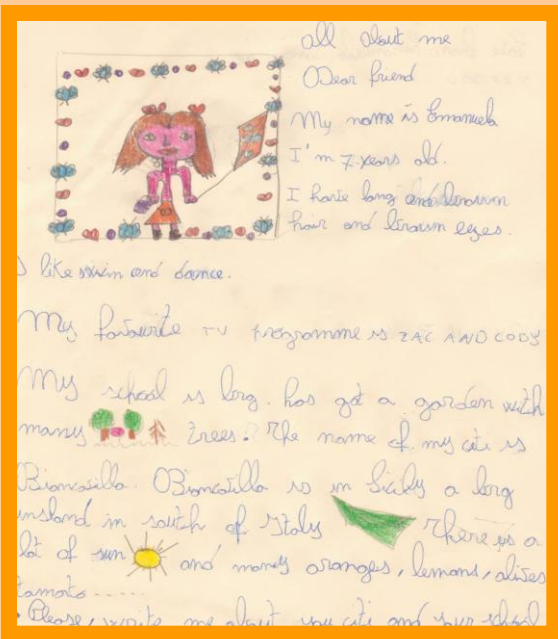 All about me
Dear friend
My name is Emanuela
I'm 7 years old.
I have long and brown
hair and brown eyes.
I like swim and dance.
My favourite TV programme is ZAC AND CODY
My school is big. has got a garden with
many trees. The name of my citi is
Biancavilla. Biancavilla is in Sicily a big
insland in south of Italy There is a
lot of sun and many oranges, lemons, olives
tamato.....
. Please, write me about your citi and your school